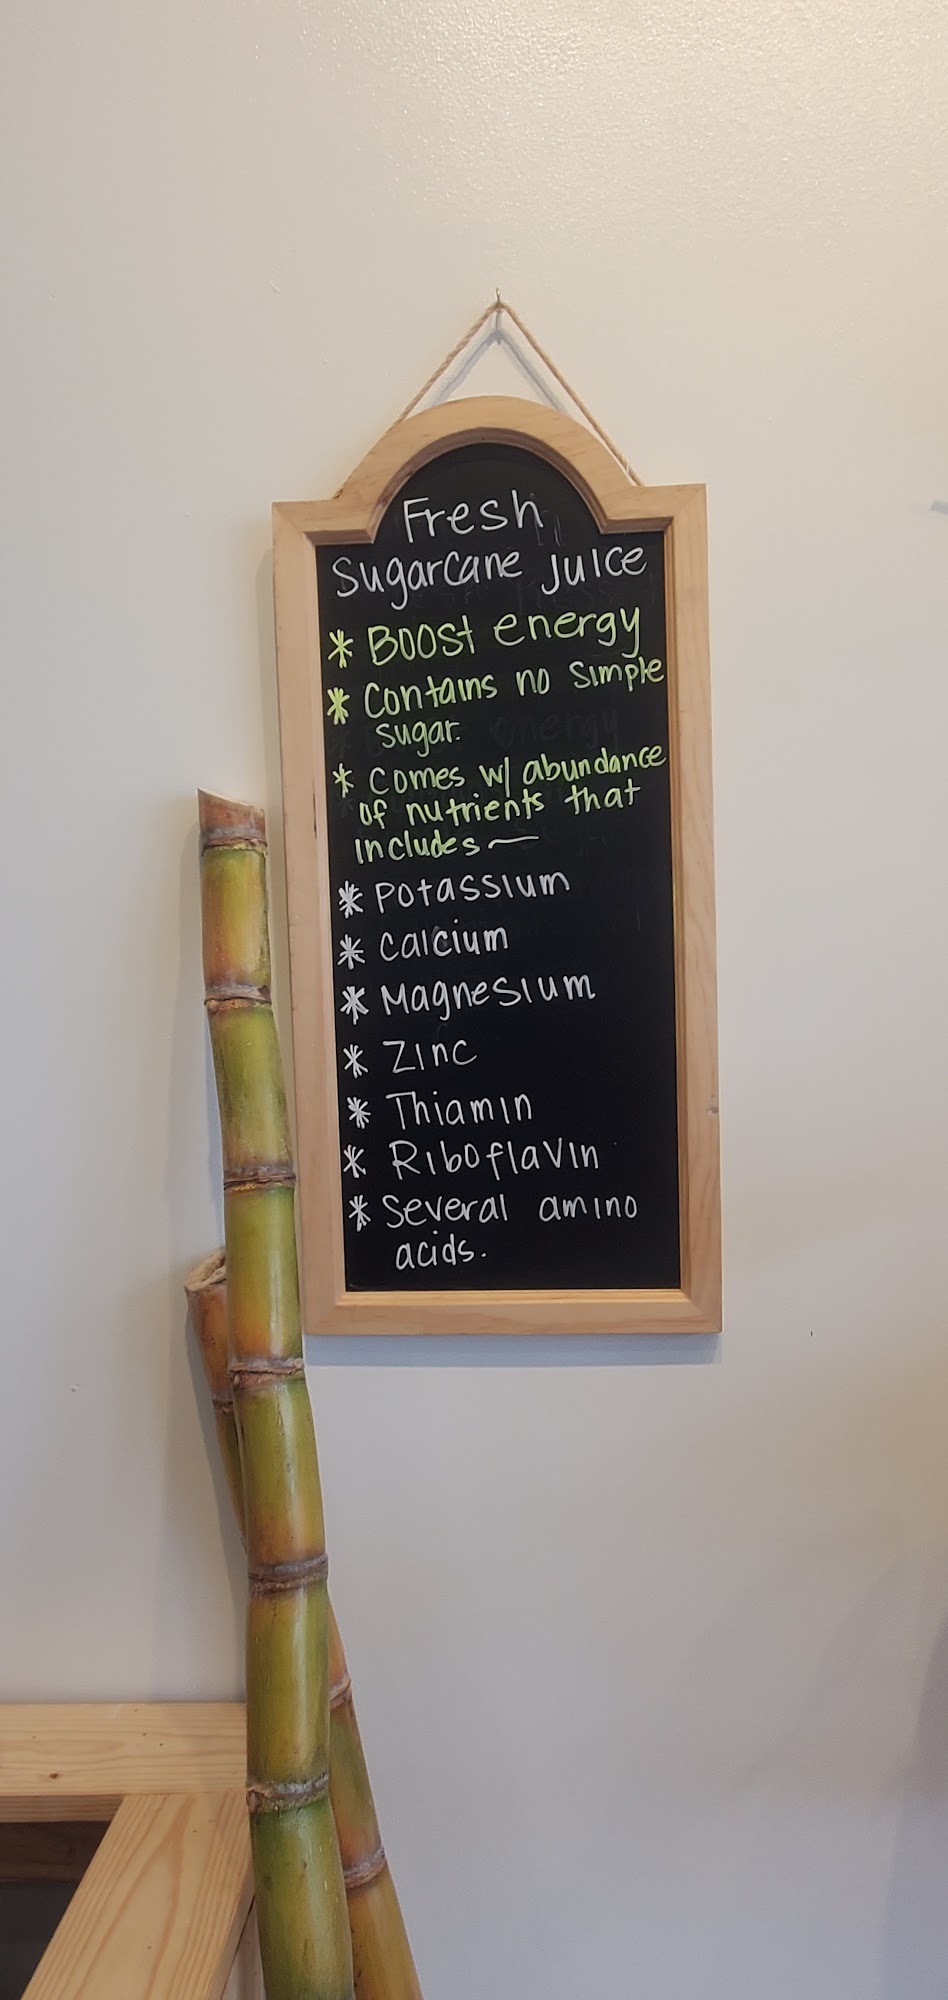 Fresh
Sugarcane Juice
* Boost energy
* Contains no simple
sugar.
* Comes w/ abundance
of nutrients that
includes —
* Potassium
* Calcium
* Magnesium
* Zinc
* Thiamin
* Riboflavin
* Several amino
acids.